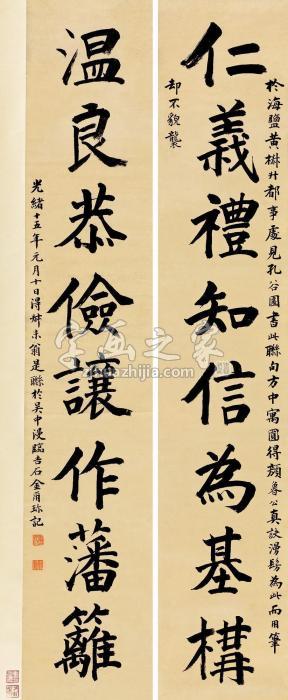 於海鹽黃椒升都事處見孔谷園書此聯句方中寓圓得顏魯公真訣漫髣為此而用筆
却不貌襲
仁義禮知信為基構
溫良恭儉讓作藩籬
光緒十五年元月十日得叔未翁是聯於吳中漫臨吉石金爾珍記
字画之家
zihuazhijia.com